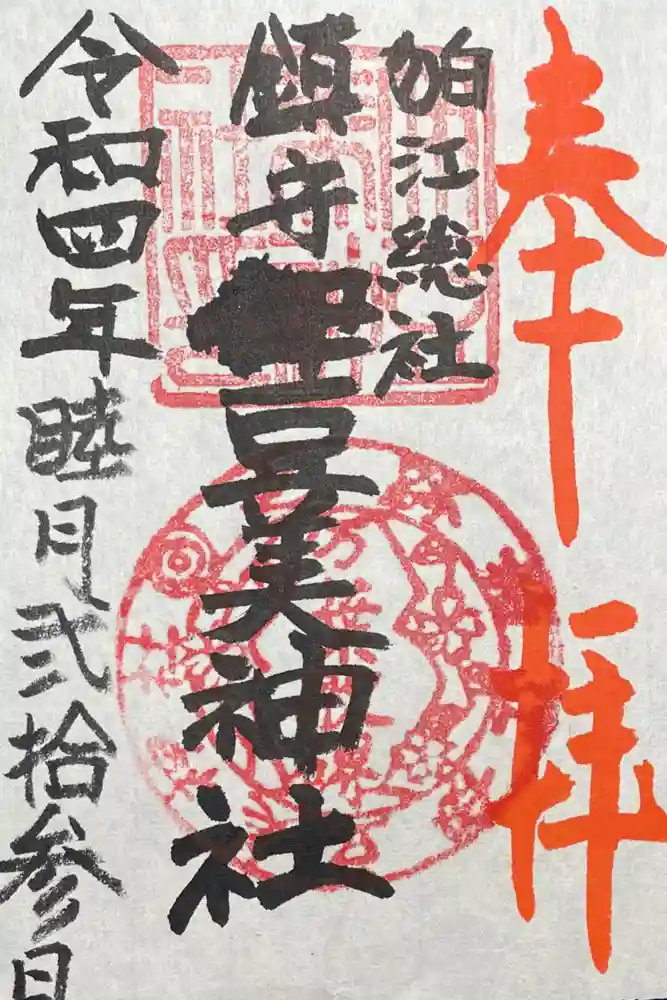 奉拝
狛江総社
鎮守 豆美神社
令和四年睦月弐拾参日